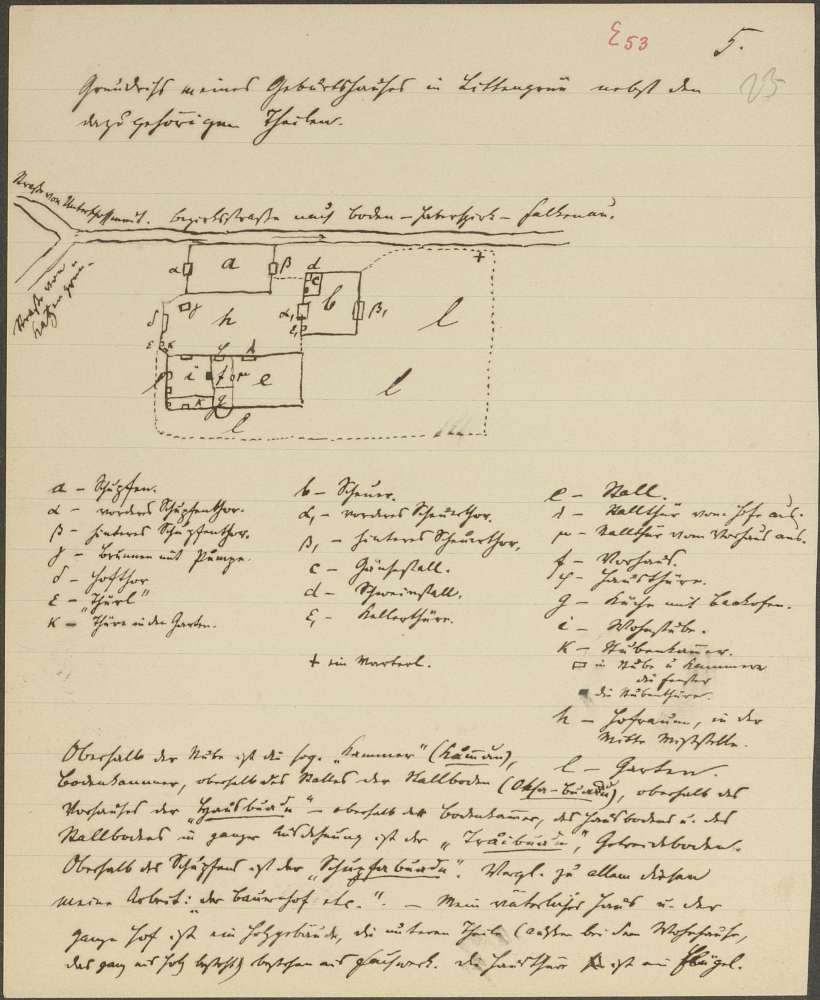 E 53
5.
Grundriss meines Geburtshauses in Littengrün nebst den
dazugehörigen Theilen.
Bezirksstraße nach Boden – Haberspirk – Falkenau.
Straße von
Straße von u.
α a β d
c
b
γ
δ h α, β, l
ε, 
ε κ
φ λ
l i f μ e l
k g
l
a – Schupfen.
α – vorderes Schupfenthor.
β – hinteres Schupfenthor.
γ – Brunnen mit Pumpe.
δ – Hofthor
ε – "Thürl"
κ – Thüre in den Garten.
b – Scheuer.
α, – vorderes Scheuerthor.
β, – hinteres Scheuerthor.
c – Gänsestall.
d – Schweinstall.
ε, – Kellerthüre.
+ ein Marterl.
e – Stall.
λ – Stallthür vom Hofe aus.
μ – Stallthür vom Vorhaus aus.
f – Vorhaus.
φ – Hausthüre.
g – Küche mit Backofen.
i – Wohnstube.
k – Stubenkammer.
in Stube u Kammer
die Fenster
die Stubenthüre.
h – Hofraum, in der
Mitte Miststelle.
l – Garten.
Oberhalb der Stube ist die sog. "Kammer"
Bodenkammer, oberhalb des Stalles der Stallboden oberhalb des
Vorhauses der – oberhalb der Bodenkammer, des Hausbodens u. des
Stallbodens in ganzer Ausdehnung ist der Getreideboden.
Oberhalb des Schupfens ist der Vergl. zu allem diesem
meine Arbeit: "der Bauernhof etc." – Mein väterliches Haus u. der
ganze Hof ist ein Holzgebäude, die unteren Theile (außer bei dem Wohnhause,
das ganz aus Holz besteht) bestehen aus Fachwerk. Die Hausthüre ist ein Flügel.